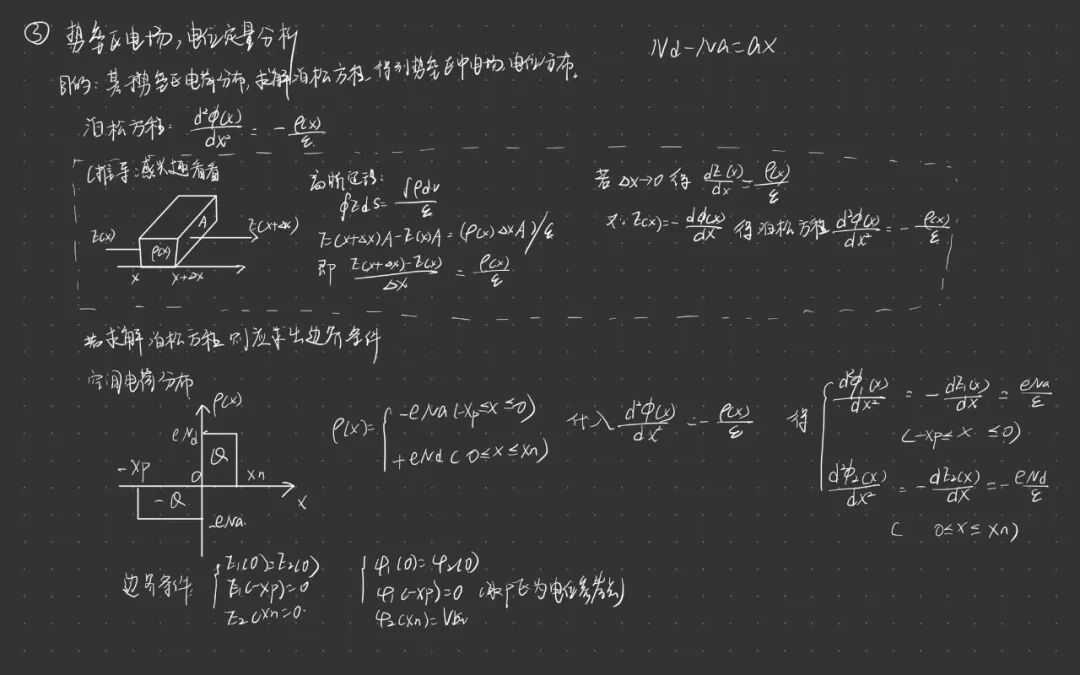 ③ 势垒区电场，电位定量分析
Nd-Na=ax
目的：基于势垒区电荷分布，求解泊松方程，得到势垒区中电场，电位分布。
泊松方程：d²φ(x)/dx² = -ρ(x)/ε
(推导：感兴趣看看
高斯定理：
∮Eds=∫ρdv/ε
E(x+Δx)A-E(x)A=(ρ(x)ΔxA)/ε
即 E(x+Δx)-E(x)/Δx = ρ(x)/ε
E(x) ρ(x) A E(x+Δx)
x x+Δx
若Δx→0 得 dE(x)/dx=ρ(x)/ε
又∵E(x)=-dφ(x)/dx 得泊松方程 d²φ(x)/dx² = -ρ(x)/ε
若求解泊松方程则应求出边界条件
空间电荷分布
ρ(x)
eNd
Q
-xp 0 xn
x
-Q
-eNa
ρ(x)= { -eNa(-xp≤x≤0)
+eNd(0≤x≤xn)
代入 d²φ(x)/dx² = -ρ(x)/ε
得 { d²φ₁(x)/dx² = -dE₁(x)/dx = eNa/ε
(-xp≤x≤0)
d²φ₂(x)/dx² = -dE₂(x)/dx = -eNd/ε
(0≤x≤xn)
边界条件：{ E₁(0)=E₂(0)
E₁(-xp)=0
E₂(xn=0
{ φ₁(0)=φ₂(0)
φ₁(-xp)=0 (取p区为电位参考点)
φ₂(xn)=Vbi